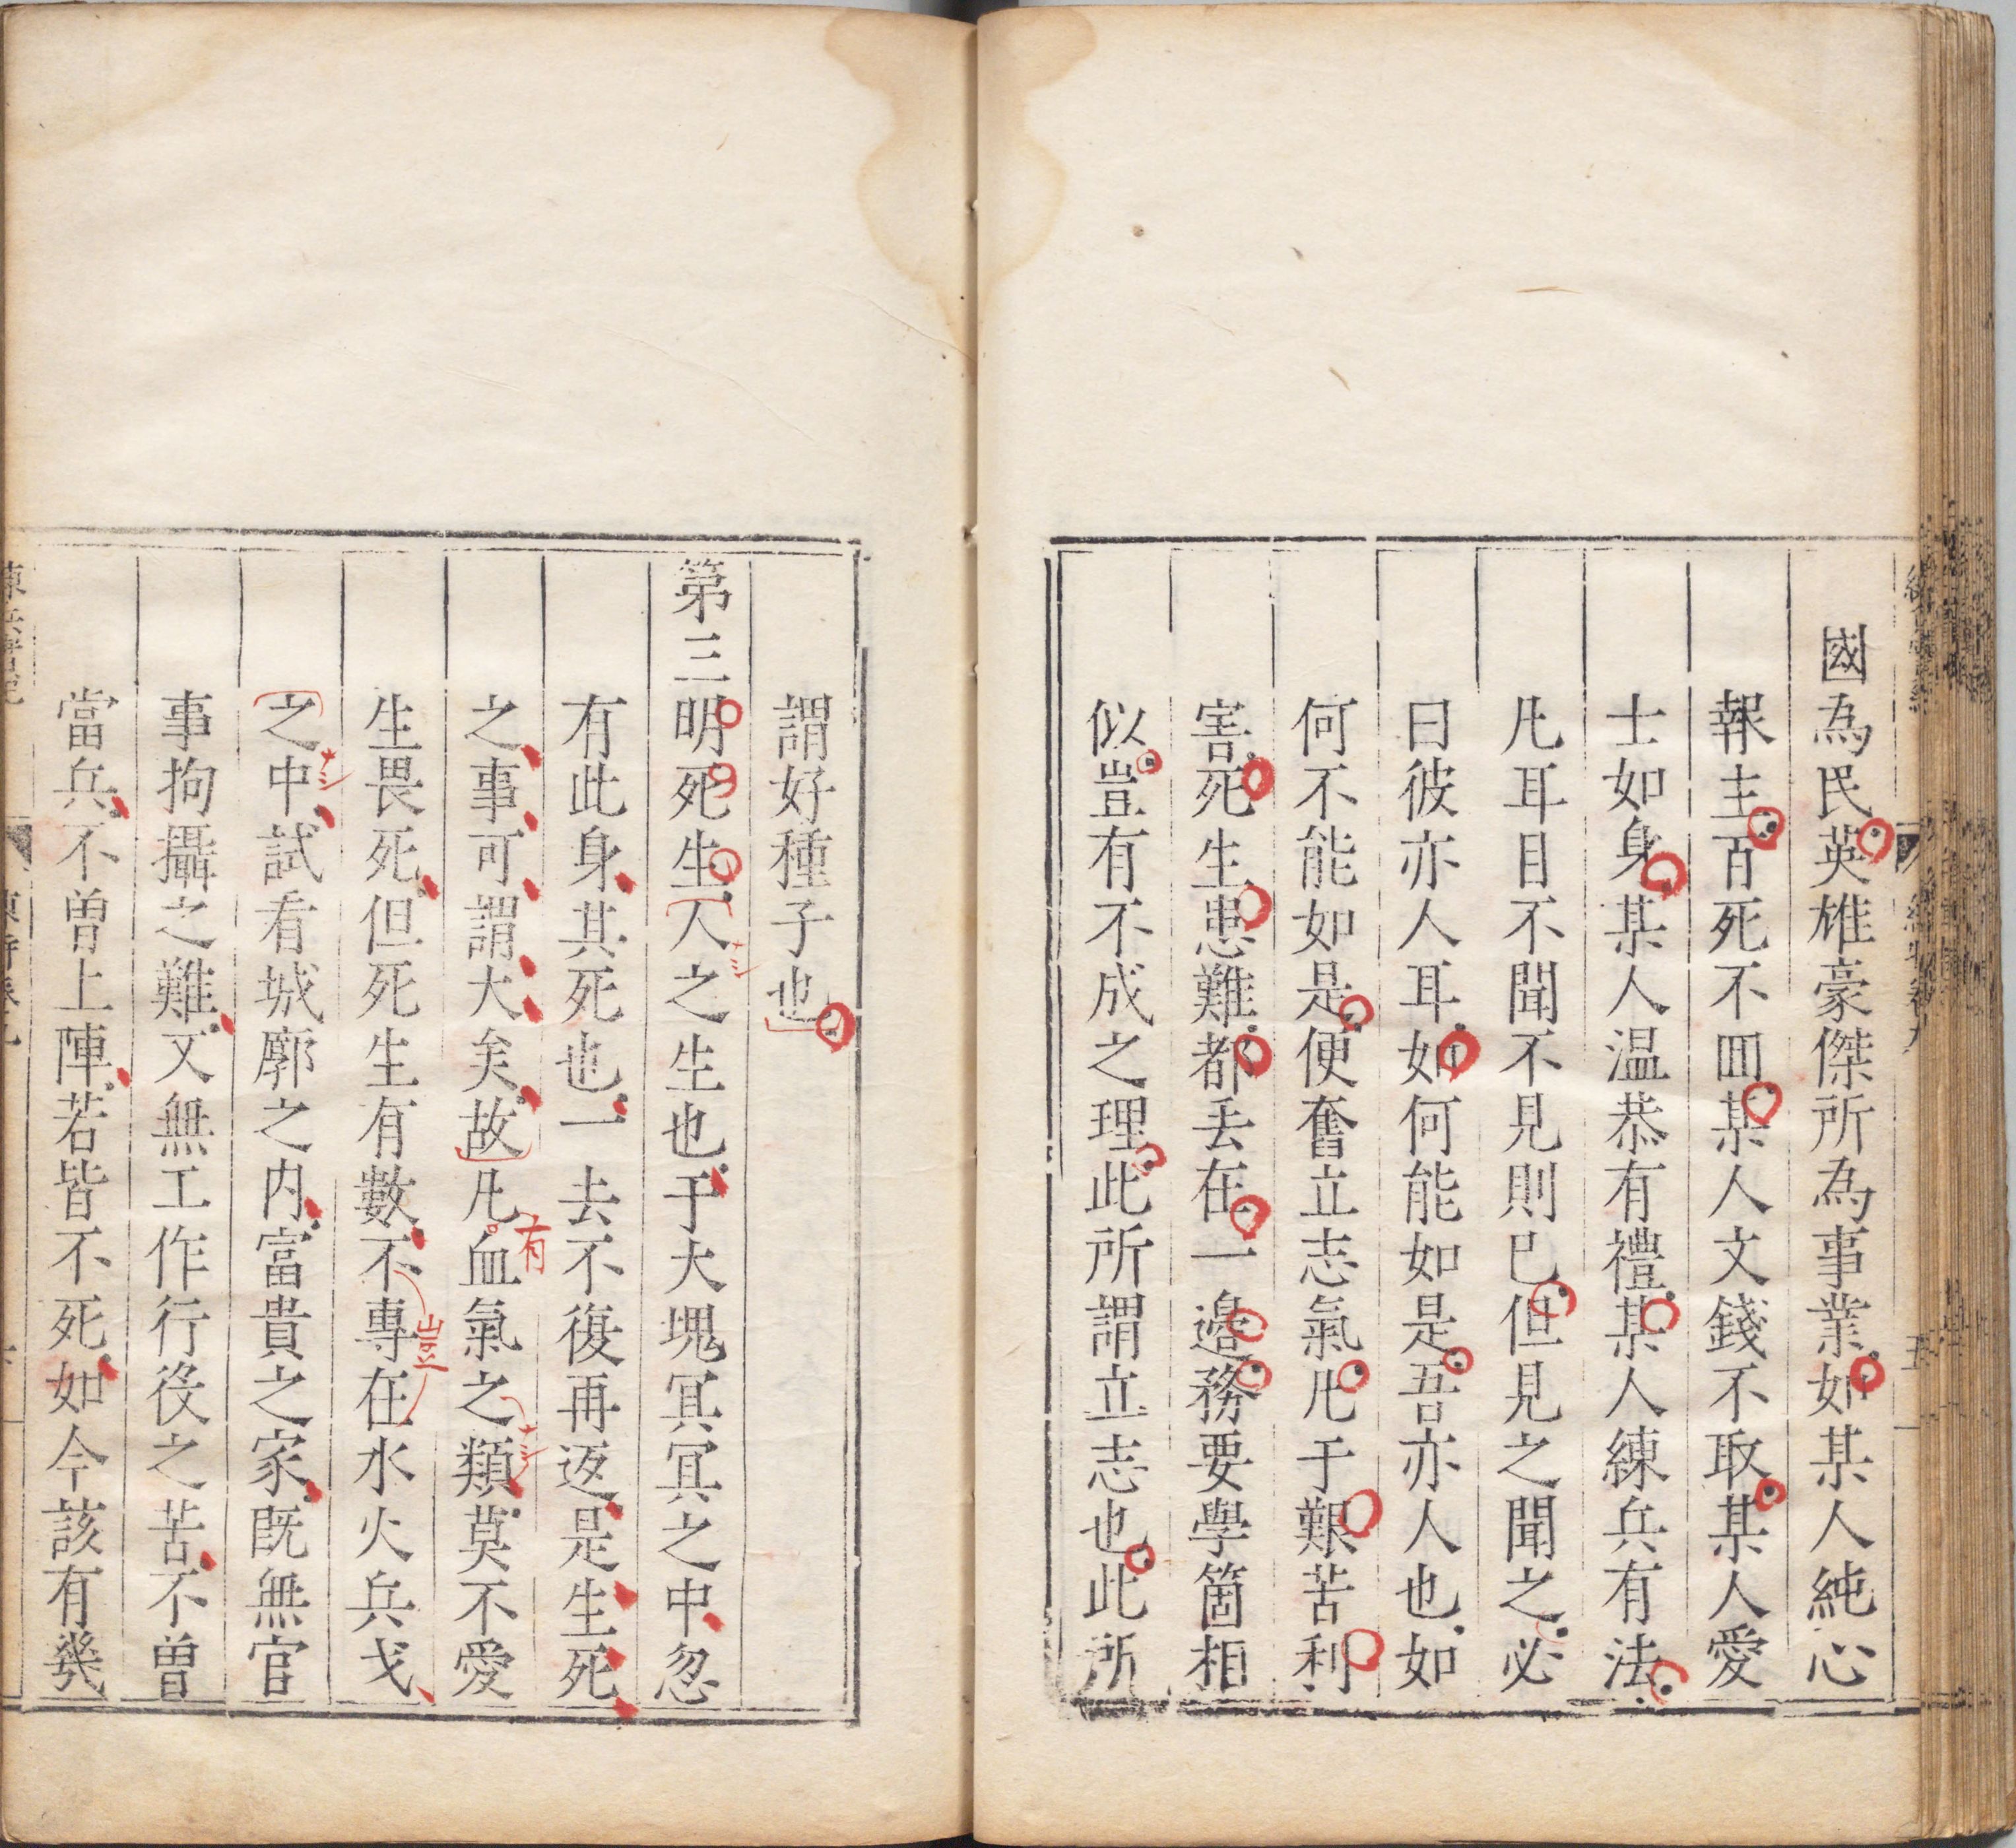 國為民英雄豪傑所為事業如某人純心
報主百死不囬某人文錢不取某人愛
士如身某人温恭有禮某人練兵有法
凡耳目不聞不見則已但見之聞之必
曰彼亦人耳如何能如是吾亦人也如
何不能如是便奮立志氣凡于艱苦利
害死生患難都丢在一邉務要學箇相
似豈有不成之理此所謂立志也此所
謂好種子也
第三明死生人之生也于大塊冥冥之中忽
ナシ
有此身其死也一去不復再返是生死
之事可謂大矣故凡血氣之類莫不愛
有
ナシ
生畏死但死生有數不專在水火兵戈
豈
之中試看城廓之内富貴之家既無官
ナシ
事拘攝之難又無工作行役之苦不曽
當兵不曽上陣若皆不死如今該有幾